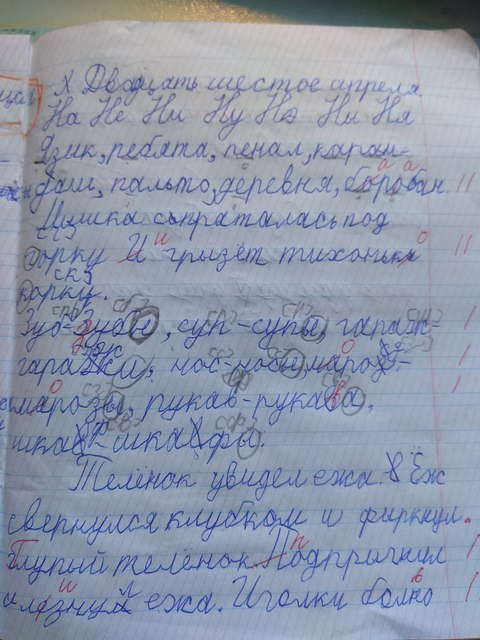 Х Двадцать шестое апреля
На Не Ни Ну Нэ Ны Ня
Язик, ребята, пенал, каран-
даш, пальто, деревня, боробан.
Мишка спраталась под
горку И грızёт тихонька
корку.
Зуб-зубы, суп-супы, гараж-
гаражи, нос-носы, мароз-
марозы, рукав-рукава,
шкаф-шкафы.
Телёнок увидел ежа. Ёж
свернулся клубком и фыркнул.
Глупий телёнок. Подпричнил
и лязнул ежа. Иголки болно